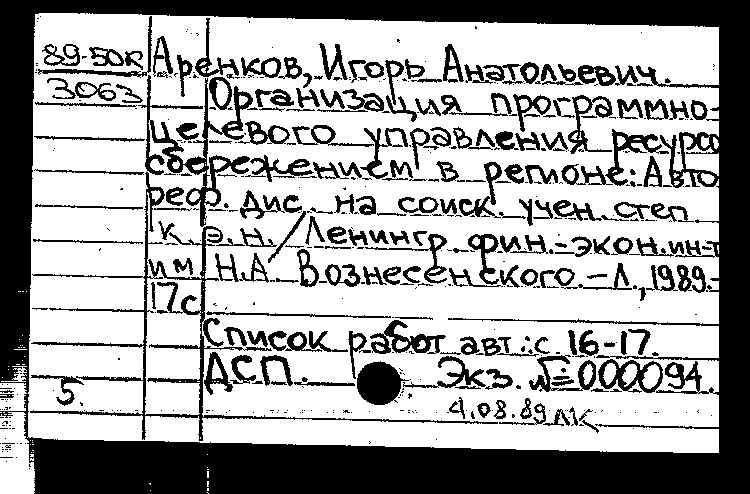 89-50к Аренков, Игорь Анатольевич.
3063 Организация программно-
целевого управления ресурсо
сбережением в регионе: Авто
реф. дис. на соиск. учен. степ.
к.э.н. / Ленингр. фин.-экон.ин-т
им. Н.А. Вознесенского. – Л., 1989.-
17с
Список работ авт.: с 16-17.
ДСП. Экз. № 000094.
5.
4.08.89